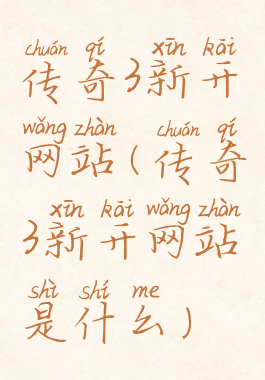 chuán qí xīn kāi
传奇3新开
wǎng zhàn chuán qí
网站(传奇
xīn kāi wǎng zhàn
3新开网站
shì shí me
是什么)